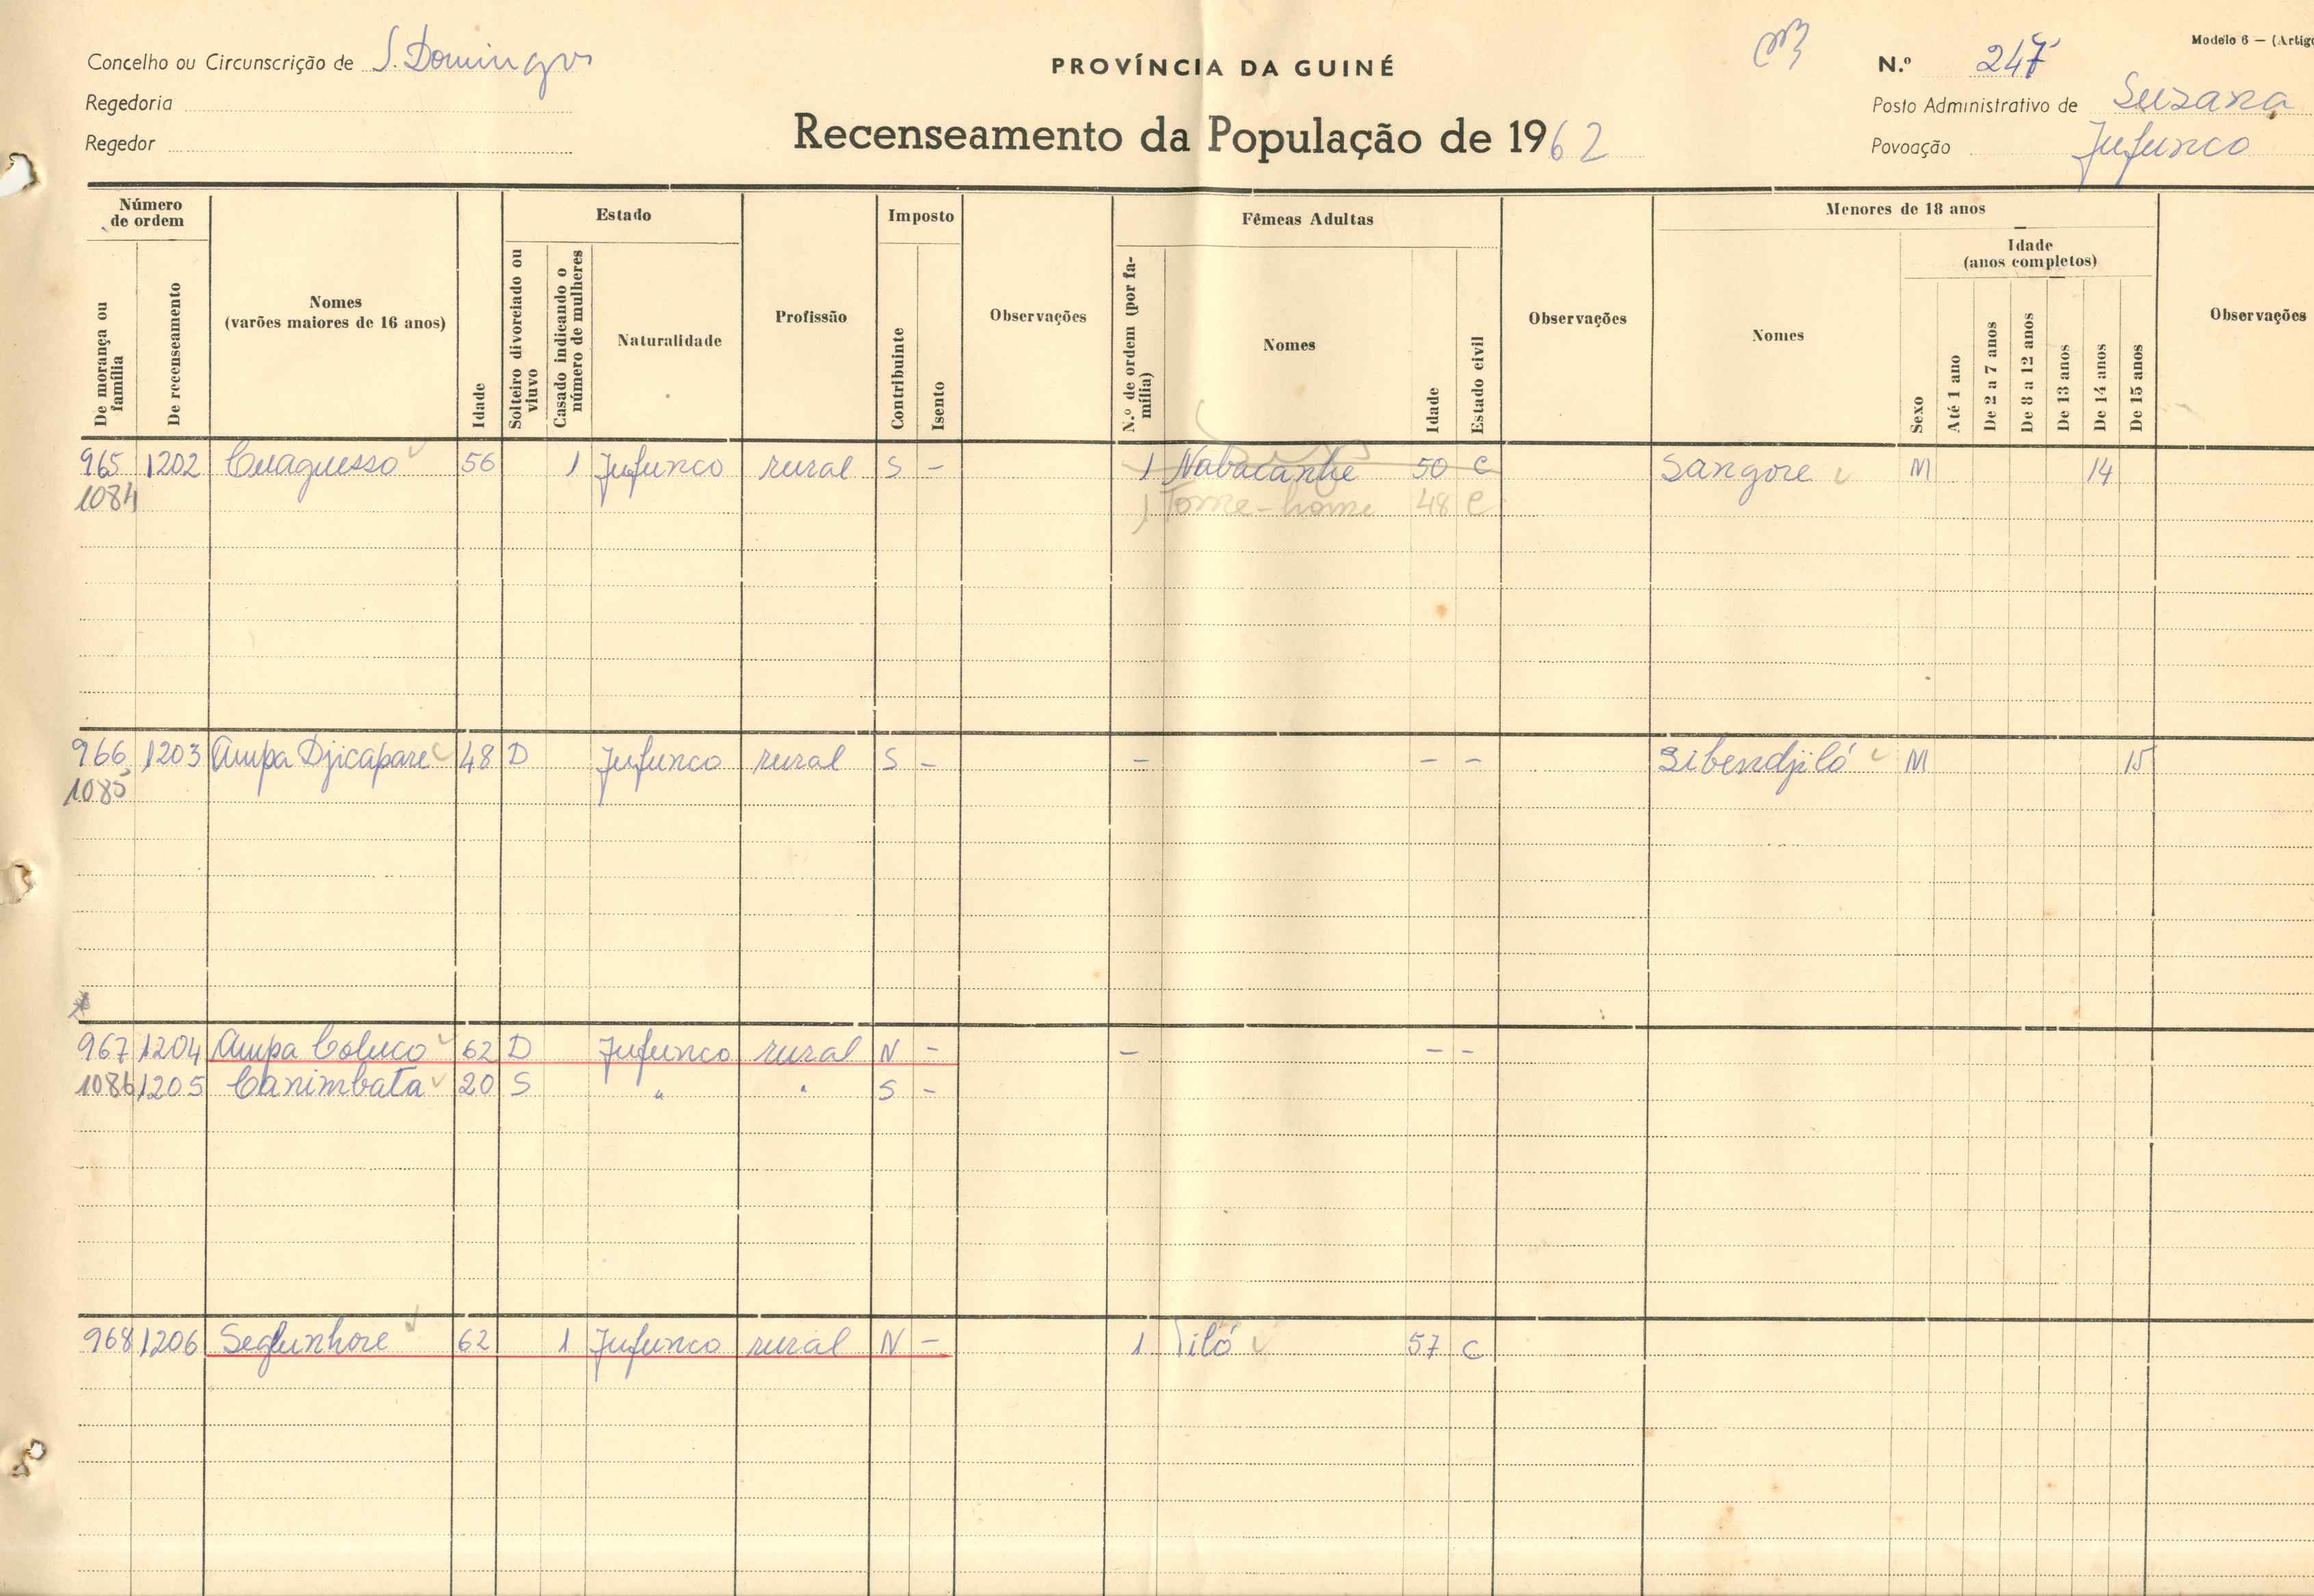 Modelo 6 — (Artigo
Concelho ou Circunscrição de S. Domingos
PROVÍNCIA DA GUINÉ
N.º 247
Regedoria
Posto Administrativo de Suzana
Regedor
Recenseamento da População de 1962
Povoação Jufunco
Número de ordem
De morança ou família
De recenseamento
Nomes
(varões maiores de 16 anos)
Idade
Estado
Solteiro divorciado ou viuvo
Casado indicando o número de mulheres
Naturalidade
Profissão
Imposto
Contribuinte
Isento
Observações
Fêmeas Adultas
N.º de ordem (por família)
Nomes
Idade
Estado civil
Observações
Menores de 18 anos
Nomes
Sexo
Idade
(anos completos)
Até 1 ano
De 2 a 7 anos
De 8 a 12 anos
De 13 anos
De 14 anos
De 15 anos
Observações
965 1202 Cuaguesso 56 1 Jufunco rural S - 1 Nabacanhe 50 C Sangore M 14
1084 1 Tome-home 48 C
966 1203 Ampa Djicapare 48 D Jufunco rural S - - - - Sibendjiló M 15
1085
967 1204 Ampa Coluco 62 D Jufunco rural N - - - -
1086 1205 Canimbata 20 S " " S -
968 1206 Segunhore 62 1 Jufunco rural N - 1 57 C